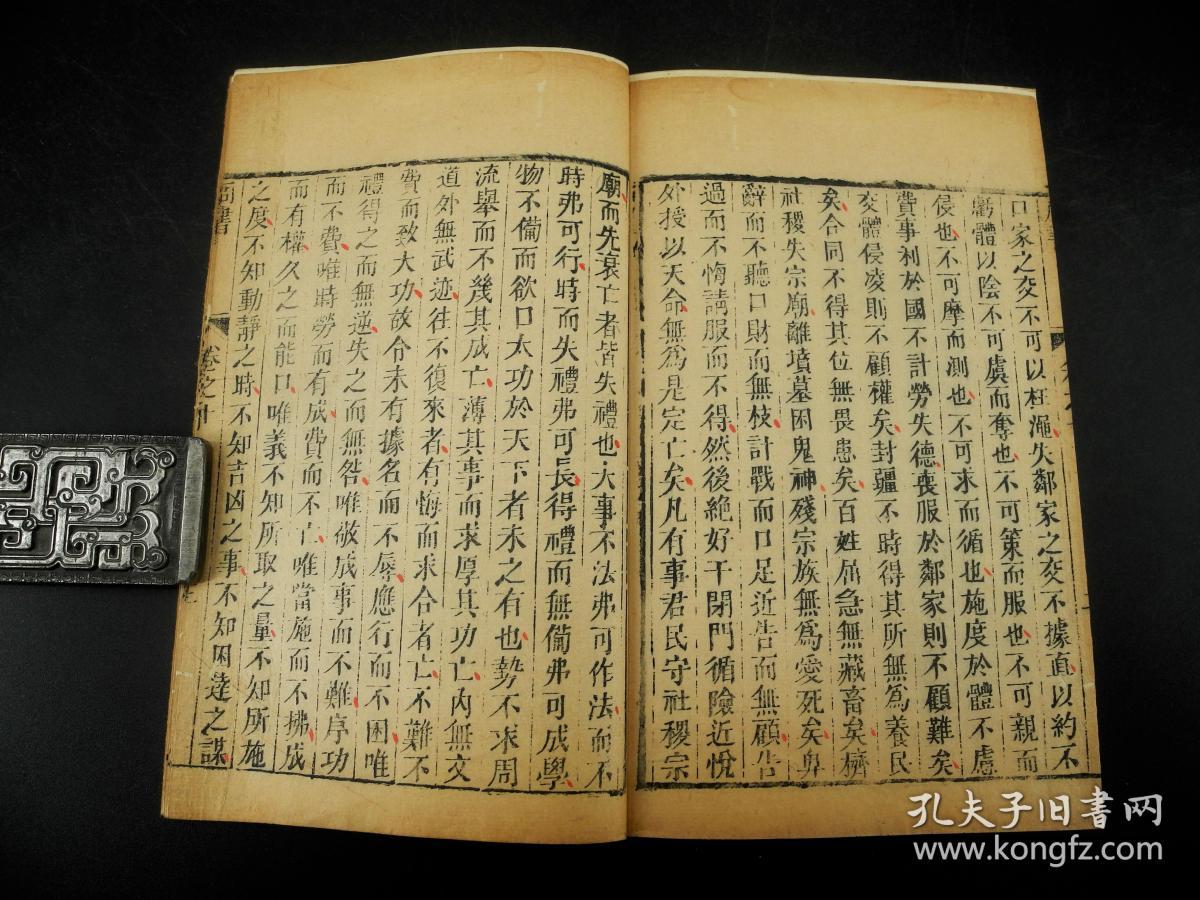 口家之交不可以枉繩失鄰家之交不據直以約不
虧體以陰不可虞而奪也不可策而服也不可親而
侵也不可摩而測也不可求而循也施度於體不慮
費事利於國不計勞失德喪服於鄰家則不顧難矣
交體侵凌則不顧權矣封疆不時得其所無為養民
矣合同不得其位無畏患矣百姓屈急無藏畜矣擠
社稷失宗廟離墳墓困鬼神殘宗族無為愛死矣卑
辭而不聽口財而無枝計戰而口足近告而無顧告
過而不悔請服而不得然後絕好于閉門循險近悅
外授以天命無為是定亡矣凡有事君民守社稷宗
廟而先衰亡者皆失禮也大事不法弗可作法而不
時弗可行時而失禮弗可長得禮而無備弗可成學
物不備而欲口大功於天下者未之有也勢不求周
流舉而不幾其成亡薄其事而求厚其功亡內無文
道外無武迹往不復來者有悔而求合者亡不難不
費而致大功故今未有據名而不辱應行而不困唯
禮得之而無逆失之而無咎唯敬成事而不難序功
而不費唯時勞而有成費而不亡唯當施而不拂成
而有權久之而能口唯義不知所取之量不知所施
之度不知動靜之時不知吉凶之事不知困達之謀
卷之十
孔夫子旧书网
www.kongfz.com